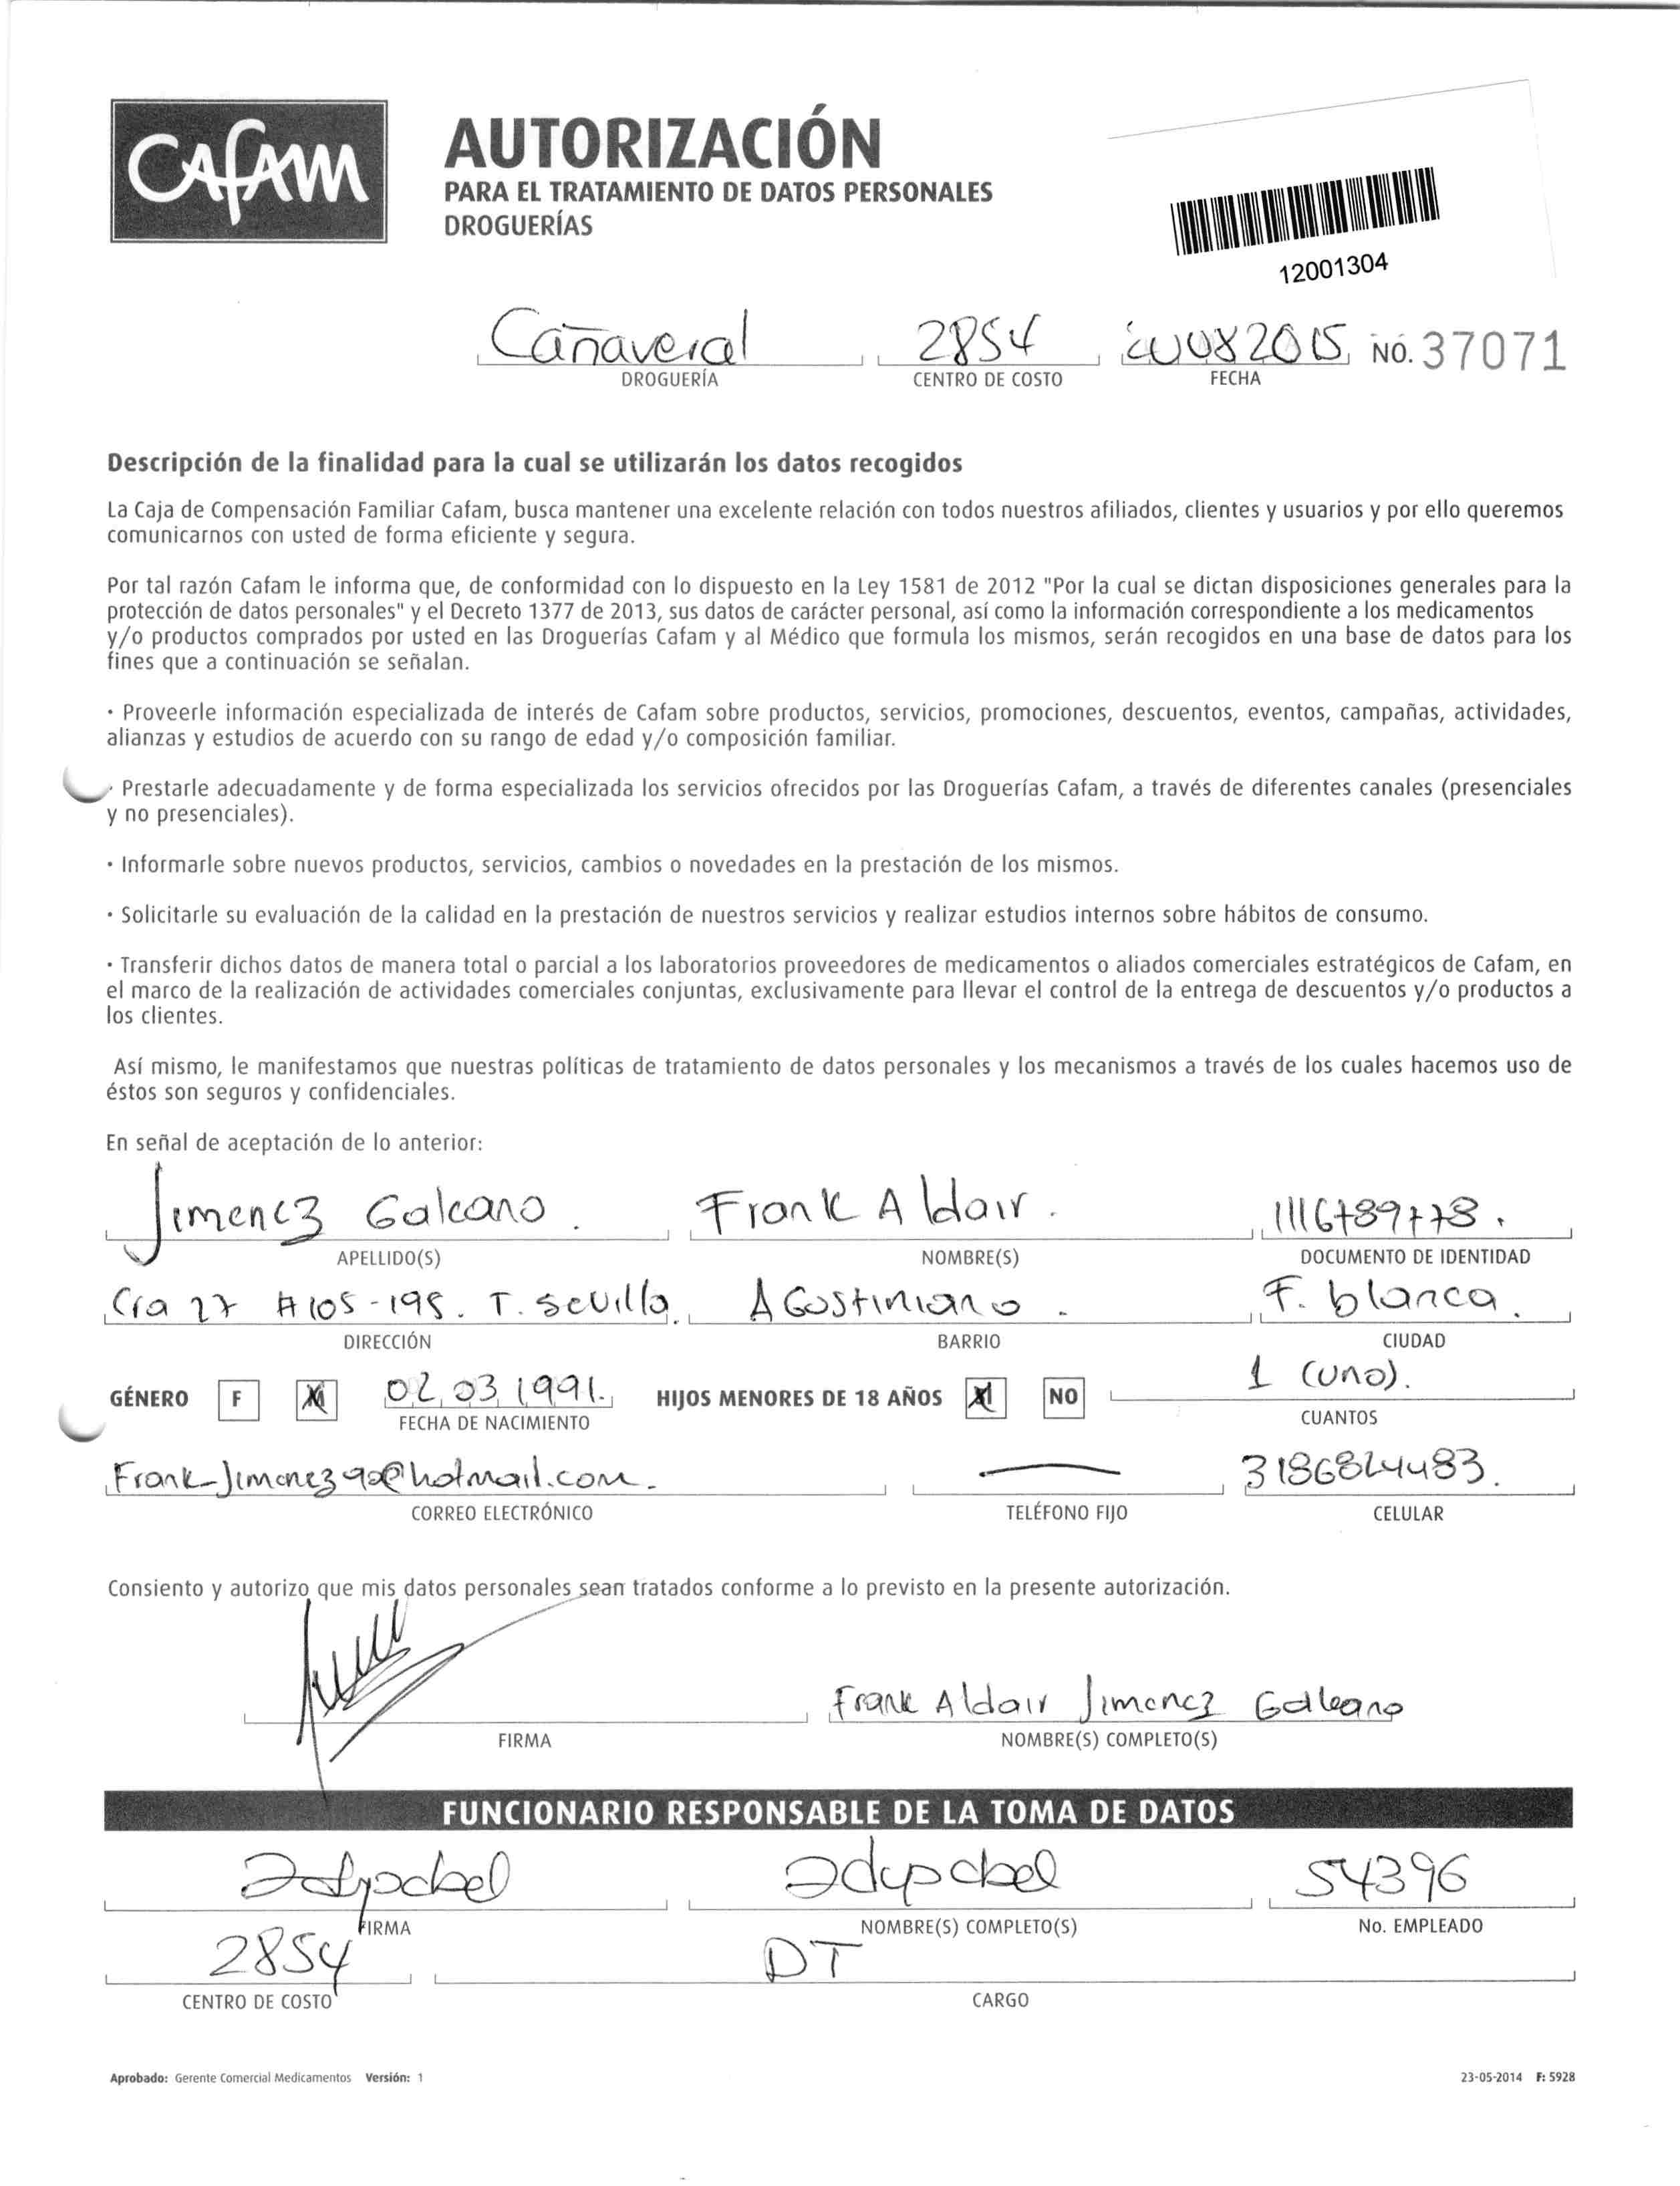 CAfAM
AUTORIZACIÓN
PARA EL TRATAMIENTO DE DATOS PERSONALES
DROGUERÍAS
12001304
Cañaveral 2854 082015 NO. 37071
DROGUERÍA CENTRO DE COSTO FECHA
Descripción de la finalidad para la cual se utilizarán los datos recogidos
La Caja de Compensación Familiar Cafam, busca mantener una excelente relación con todos nuestros afiliados, clientes y usuarios y por ello queremos
comunicarnos con usted de forma eficiente y segura.
Por tal razón Cafam le informa que, de conformidad con lo dispuesto en la Ley 1581 de 2012 "Por la cual se dictan disposiciones generales para la
protección de datos personales" y el Decreto 1377 de 2013, sus datos de carácter personal, así como la información correspondiente a los medicamentos
y/o productos comprados por usted en las Droguerías Cafam y al Médico que formula los mismos, serán recogidos en una base de datos para los
fines que a continuación se señalan.
· Proveerle información especializada de interés de Cafam sobre productos, servicios, promociones, descuentos, eventos, campañas, actividades,
alianzas y estudios de acuerdo con su rango de edad y/o composición familiar.
· Prestarle adecuadamente y de forma especializada los servicios ofrecidos por las Droguerías Cafam, a través de diferentes canales (presenciales
y no presenciales).
· Informarle sobre nuevos productos, servicios, cambios o novedades en la prestación de los mismos.
· Solicitarle su evaluación de la calidad en la prestación de nuestros servicios y realizar estudios internos sobre hábitos de consumo.
· Transferir dichos datos de manera total o parcial a los laboratorios proveedores de medicamentos o aliados comerciales estratégicos de Cafam, en
el marco de la realización de actividades comerciales conjuntas, exclusivamente para llevar el control de la entrega de descuentos y/o productos a
los clientes.
Así mismo, le manifestamos que nuestras políticas de tratamiento de datos personales y los mecanismos a través de los cuales hacemos uso de
éstos son seguros y confidenciales.
En señal de aceptación de lo anterior:
Jimenez Galeano. Frank Aldair. 1116789778.
APELLIDO(S) NOMBRE(S) DOCUMENTO DE IDENTIDAD
Cra 27 #105-195. T. Sevilla. Agustiniano. F. blanca.
DIRECCIÓN BARRIO CIUDAD
GÉNERO F M 02 03 1991. HIJOS MENORES DE 18 AÑOS SI NO 1 (uno).
FECHA DE NACIMIENTO CUANTOS
Frank-Jimenez90@hotmail.com. — 3186824483.
CORREO ELECTRÓNICO TELÉFONO FIJO CELULAR
Consiento y autorizo que mis datos personales sean tratados conforme a lo previsto en la presente autorización.
Frank Aldair Jimenez Galeano
FIRMA NOMBRE(S) COMPLETO(S)
FUNCIONARIO RESPONSABLE DE LA TOMA DE DATOS
54396
FIRMA NOMBRE(S) COMPLETO(S) No. EMPLEADO
2854 DT
CENTRO DE COSTO CARGO
Aprobado: Gerente Comercial Medicamentos Versión: 1 23-05-2014 F: 5928